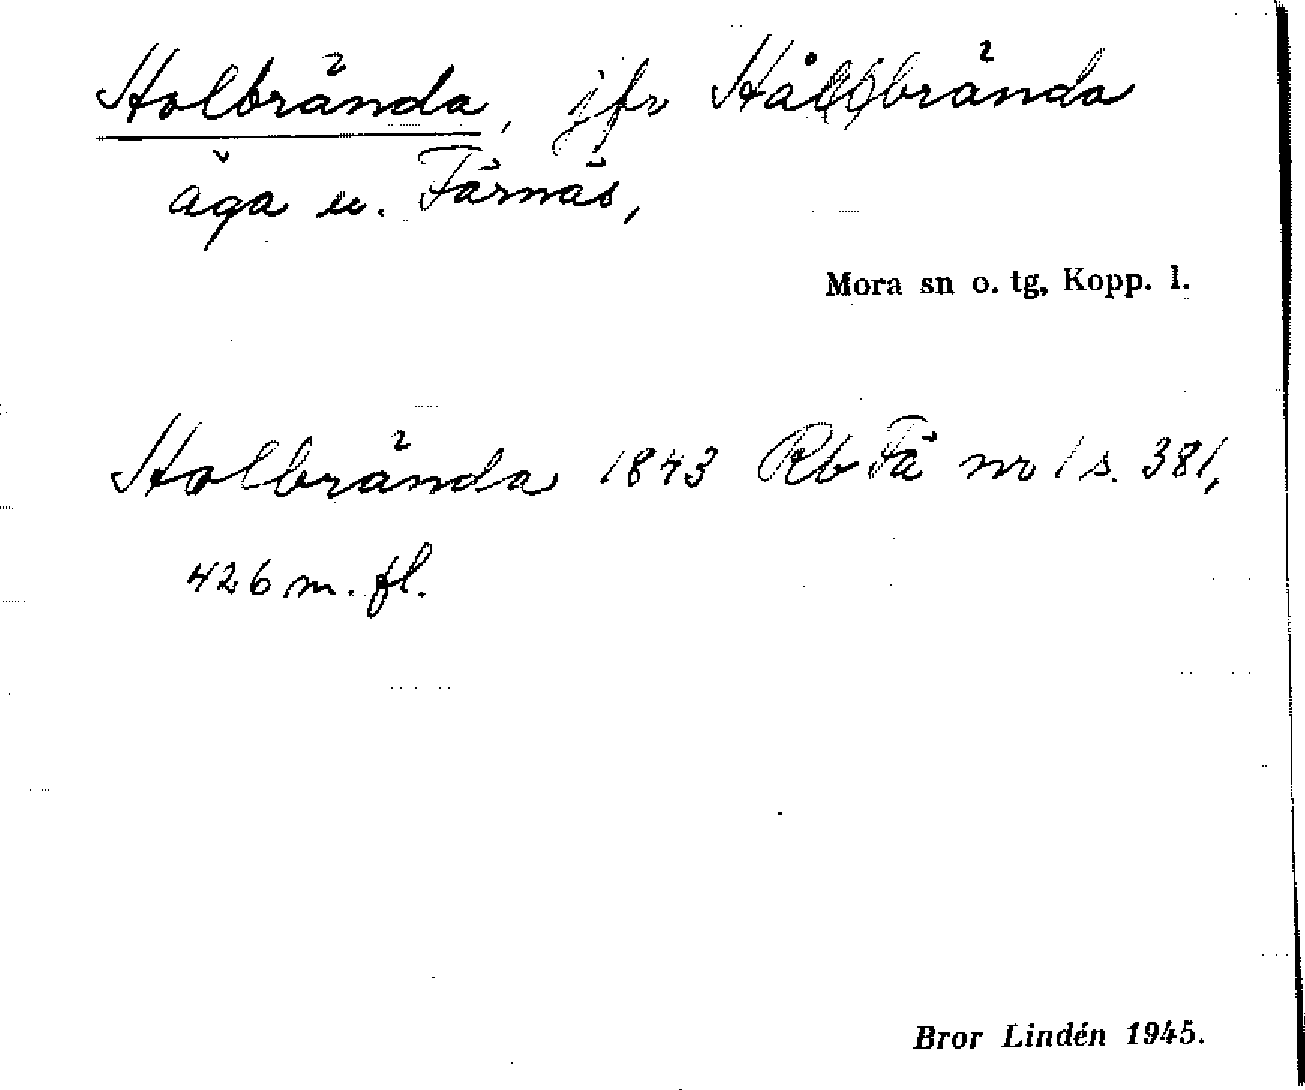 Holbrända, jfr Hål(s)brända
äga u. Färnäs,
Mora sn o. tg, Kopp. l.
Holbrända 1843 Rb Fä nr 1 s. 381,
426 m. fl.
Bror Lindén 1945.